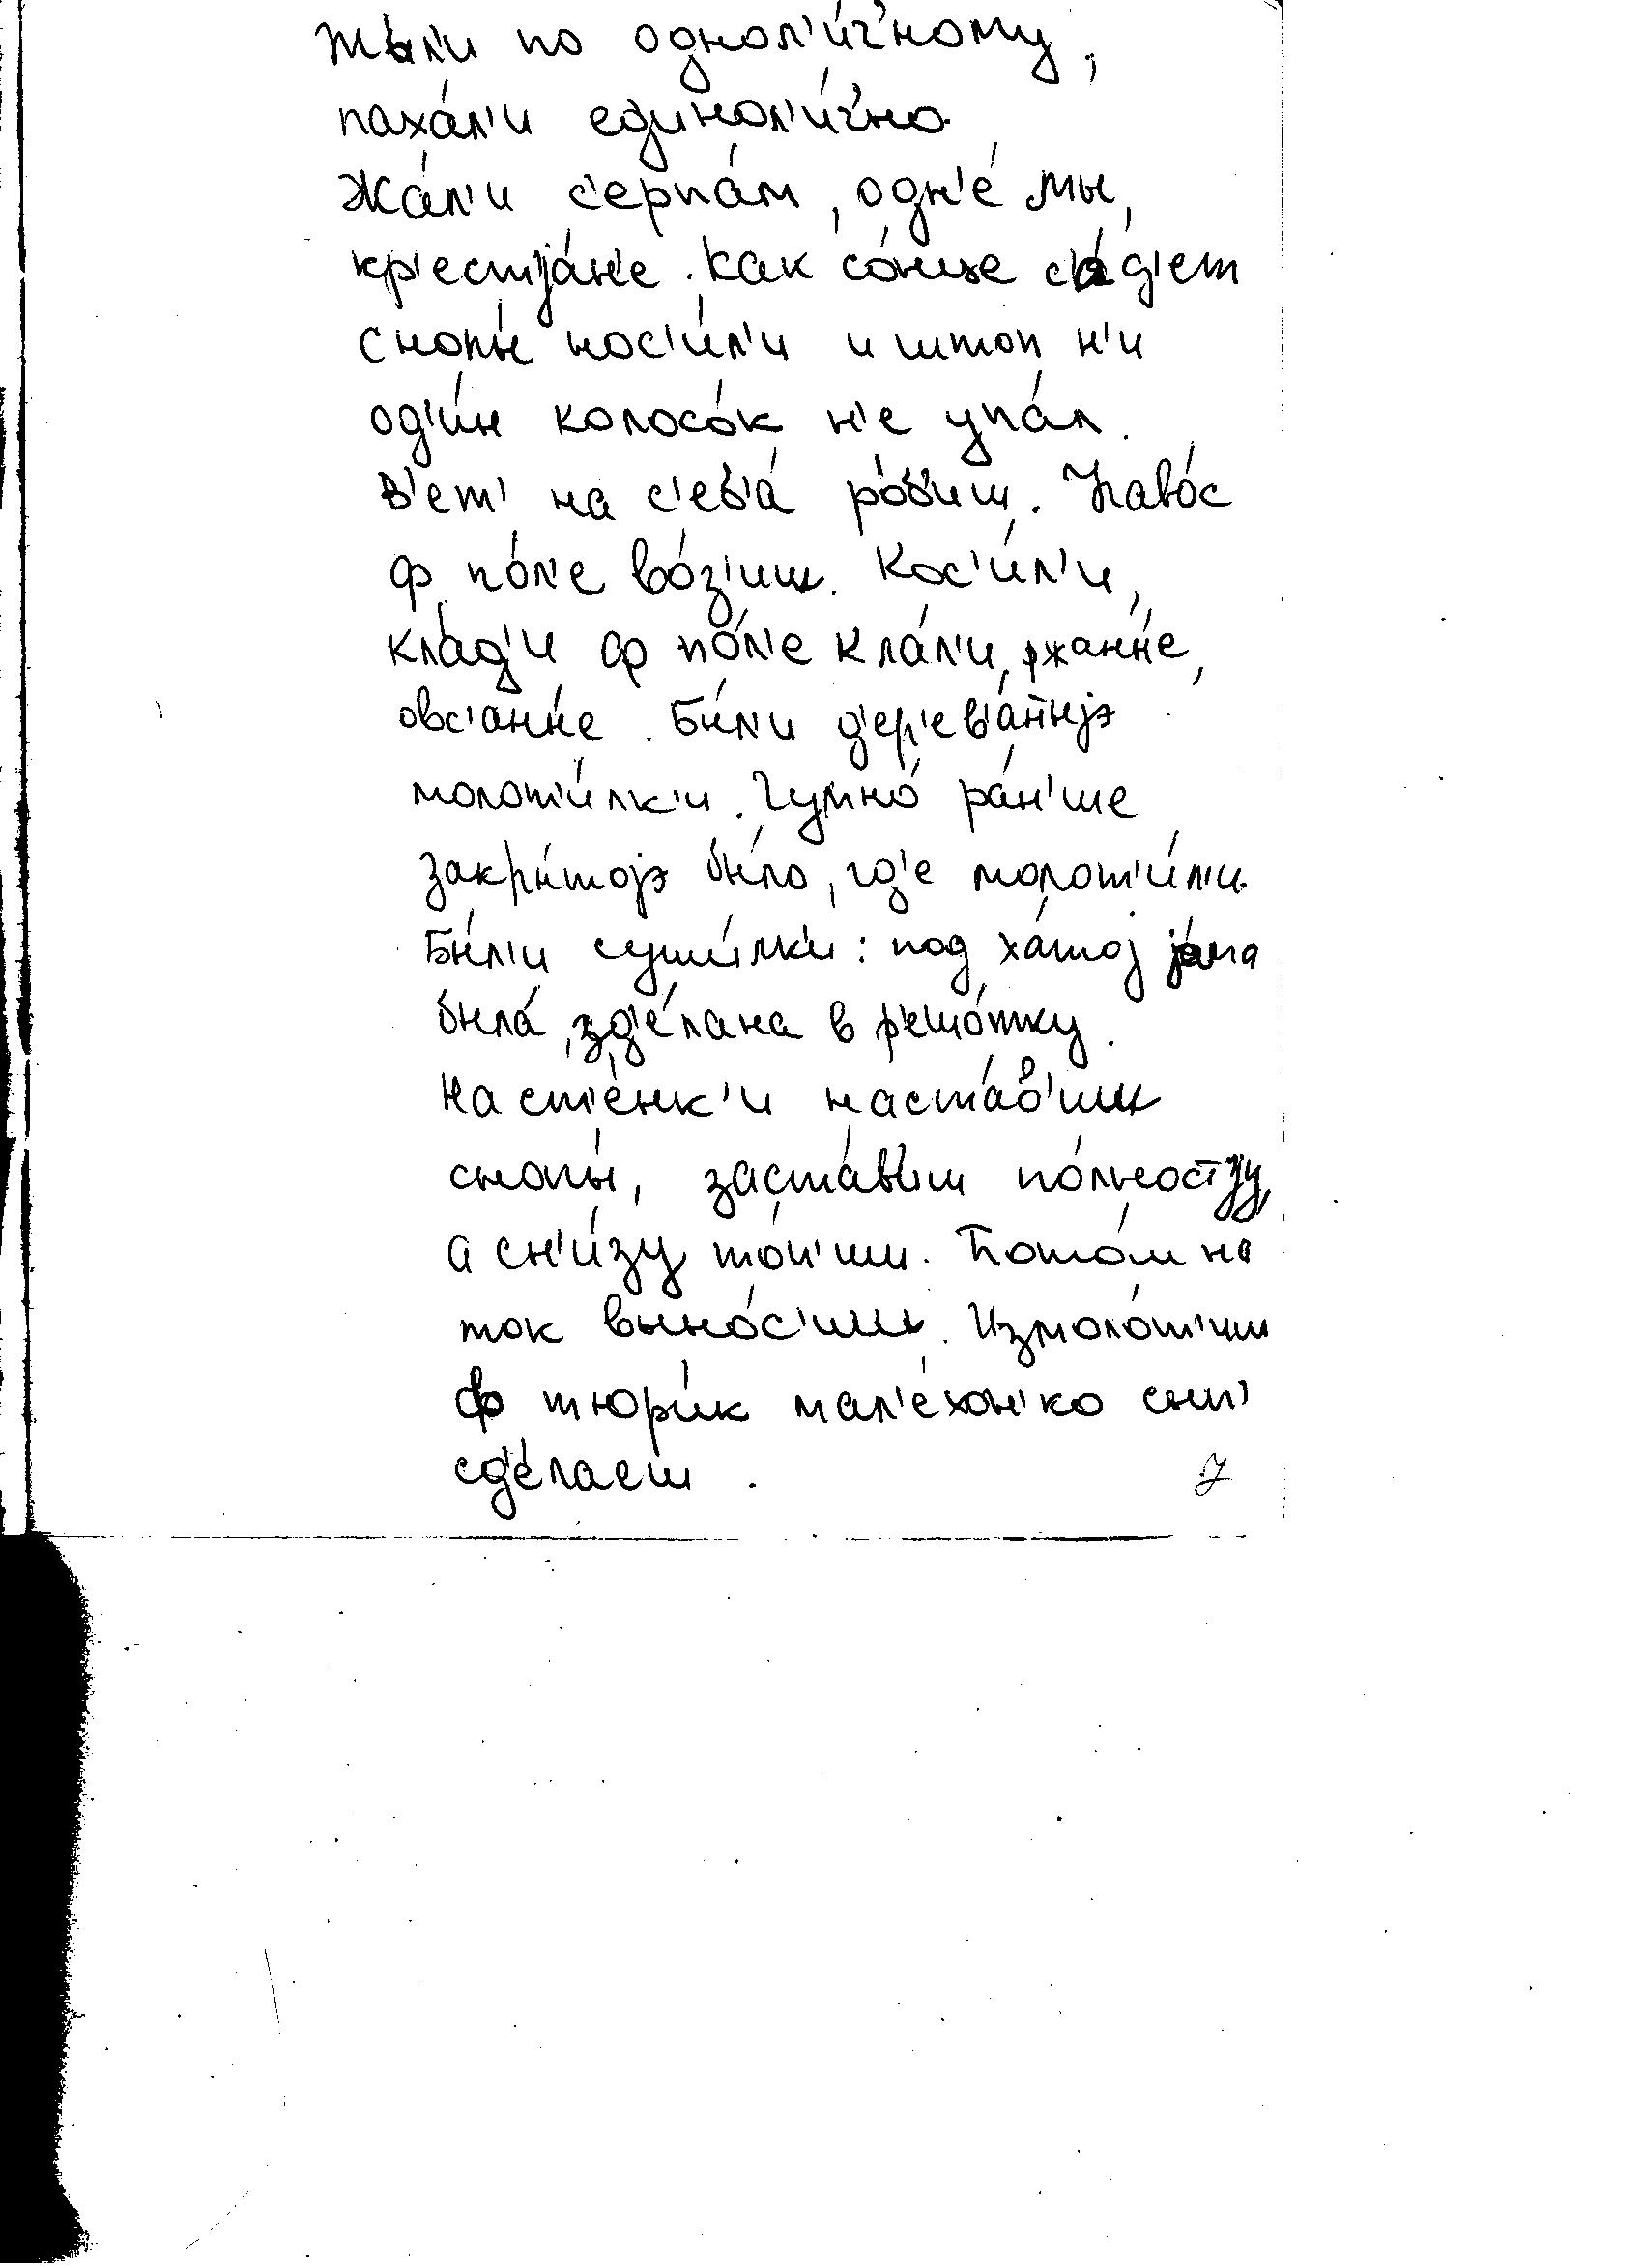 жы́л'и по однол'и́ч'ному,
паха́л'и единол'и́ч'но.
Жа́л'и с'ерпа́м, одн'е́ мы,
кр'естја́н'е. Как со́нце с'а́д'ет
снопы́ нос'и́л'и и штоп н'и
од'и́н колосо́к н'е упа́л.
В'ет' на с'еб'а́ ро́б'иш. Наво́с
ф по́л'е во́з'иш. Кос'и́л'и,
кла́д'и ф по́л'е кла́л'и, ржаны́е,
овс'аны́е. Бы́л'и д'ер'ев'а́ныjэ
молот'и́лк'и. Гумно́ ра́н'ше
закры́тоjэ бы́ло, гд'е молот'и́л'и.
Бы́л'и суши́лк'и: под ха́тоj jа́ма
была́, зд'е́лана в р'ешо́тку.
На ст'е́нк'и наста́в'иш
снопы́, заста́в'иш по́лностjу,
а сн'и́зу то́п'иш. Пото́м на
ток выно́с'иш. Измоло́т'иш
ф тюр'и́к мал'е́хон'ко
сд'е́лаеш.
7